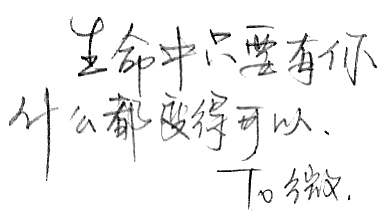 生命中只要有你
什么都变得可以、
To 微.